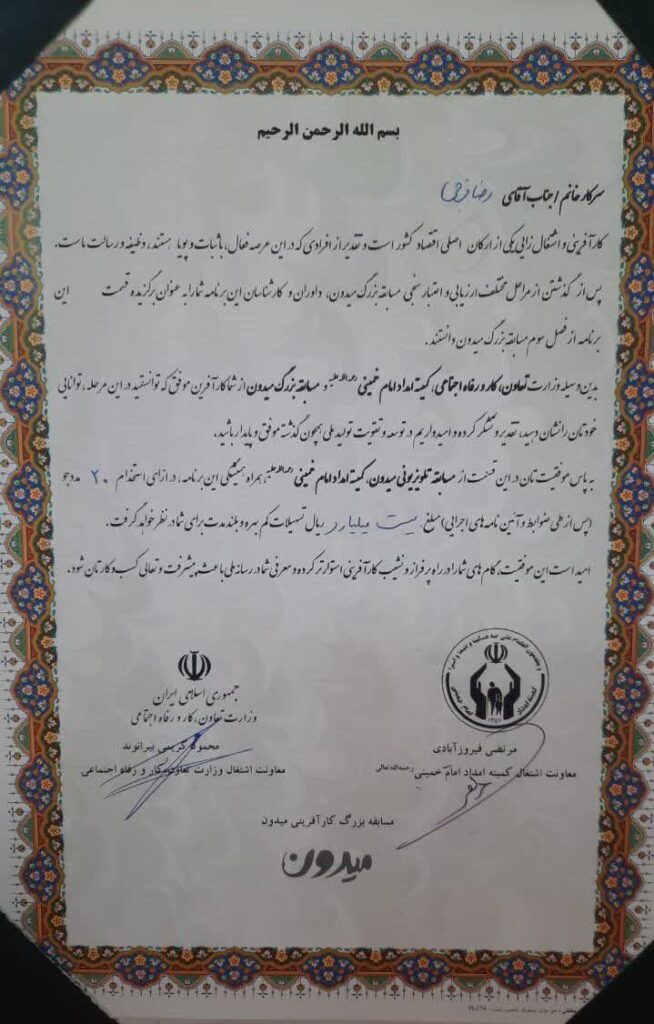 بسم الله الرحمن الرحیم
سرکار خانم / جناب آقای رضا فرجی
کارآفرینی و اشتغال زائی یکی از ارکان اصلی اقتصاد کشور است و تقدیر از افرادی که در این عرصه فعال، با ثبات و پویا هستند، وظیفه و رسالت ماست.
پس از گذشتن از مراحل مختلف ارزیابی و اعتبار سنجی مسابقه بزرگ میدون، داوران و کارشناسان این برنامه شما را به عنوان برگزیده قسمت این
برنامه از فصل سوم مسابقه بزرگ میدون دانستند.
بدین وسیله وزارت تعاون، کار و رفاه اجتماعی، کمیته امداد امام خمینی رحمةالله علیه و مسابقه بزرگ میدون از شما کارآفرین موفق که توانستید در این مرحله، توانایی
خودتان را نشان دهید، تقدیر و تشکر کرده و امیدواریم در توسعه و تقویت تولید ملی همچون گذشته موفق و پایدار باشید.
به پاس موفقیت تان در این قسمت از مسابقه تلویزیونی میدون، کمیته امداد امام خمینی رحمةالله علیه، همراه همیشگی این برنامه، در ازای استخدام ۲۰ مددجو
(پس از طی ضوابط و آئین نامه های اجرایی) مبلغ بیست میلیارد ریال تسهیلات کم بهره و بلند مدت برای شما در نظر خواهد گرفت.
امید است این موفقیت، گام های شما را در راه پر فراز و نشیب کارآفرینی استوارتر کرده و معرفی شما در رسانه ملی باعث پیشرفت و تعالی کسب و کارتان شود.
جمهوری اسلامی ایران
وزارت تعاون، کار و رفاه اجتماعی
محمود کریمی بیرانوند
معاونت اشتغال وزارت تعاون، کار و رفاه اجتماعی
کمیته امداد امام خمینی
۱۳۵۷
مرتضی فیروزآبادی
معاونت اشتغال کمیته امداد امام خمینی رحمةالله تعالی
مسابقه بزرگ کارآفرینی میدون
میدون